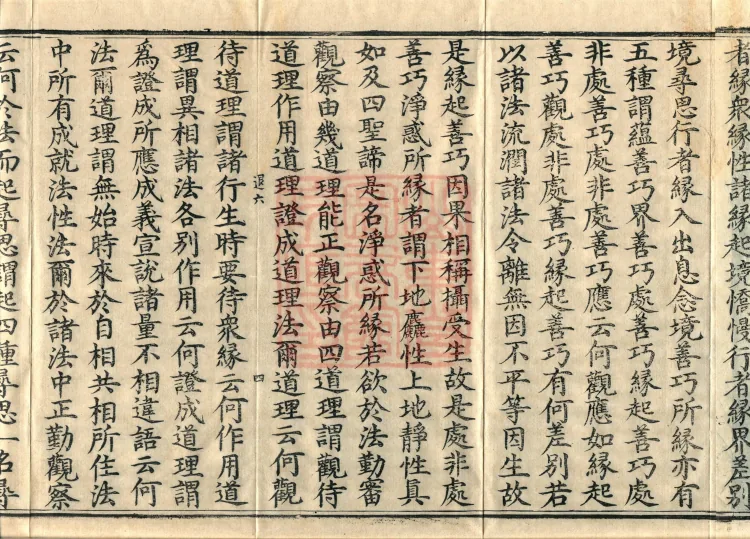 者緣衆緣性諸緣起境憍慢行者緣界差別
境尋思行者緣入出息念境善巧所緣亦有
五種謂蘊善巧界善巧處善巧緣起善巧處
非處善巧處非處善巧應云何觀應如緣起
善巧觀處非處善巧緣起善巧有何差別若
以諸法流潤諸法令離無因不平等因生故
是緣起善巧因果相稱攝受生故是處非處
善巧淨惑所緣者謂下地麤性上地靜性真
如及四聖諦是名淨惑所緣若欲於法勤審
觀察由幾道理能正觀察由四道理謂觀待
道理作用道理證成道理法爾道理云何觀
退六 四
待道理謂諸行生時要待衆緣云何作用道
理謂異相諸法各別作用云何證成道理謂
爲證成所應成義宣說諸量不相違語云何
法爾道理謂無始時來於自相共相所住法
中所有成就法性法爾於諸法中正勤觀察
云何於法而起尋思謂起四種尋思一名尋